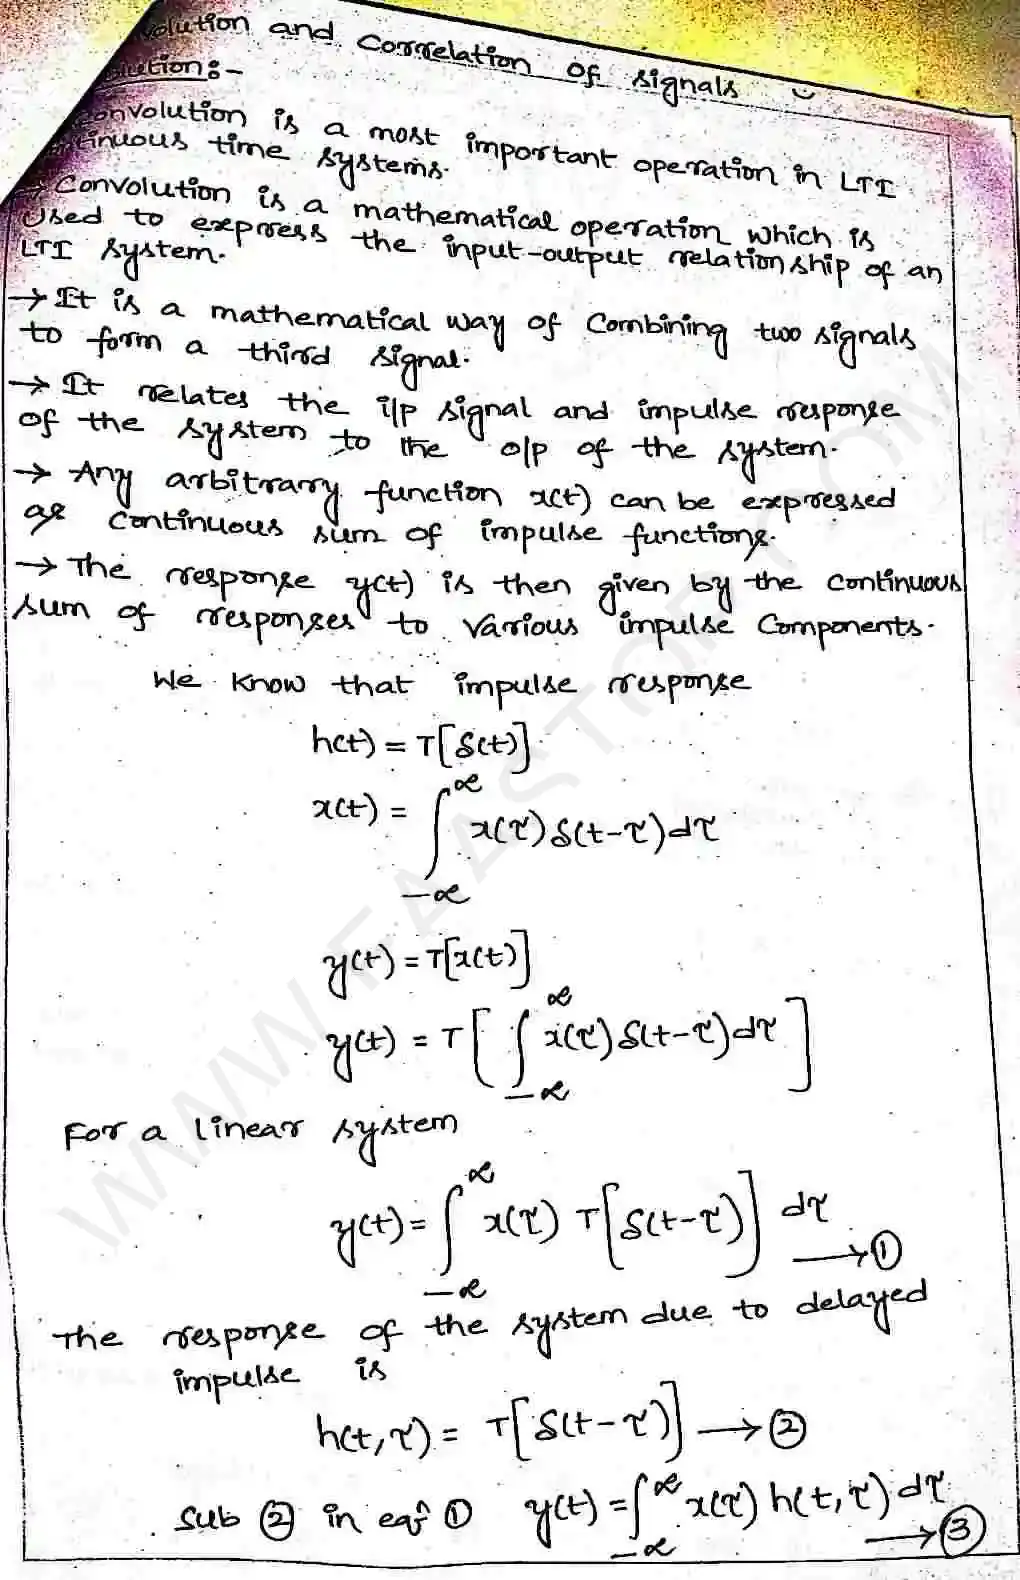 volution and Correlation of signals
lution:-
Convolution is a most important operation in LTI
tinuous time systems.
→ Convolution is a mathematical operation which is
used to express the input-output relationship of an
LTI system.
→ It is a mathematical way of Combining two signals
to form a third signal.
→ It relates the i/p signal and impulse response
of the system to the o/p of the system.
→ Any arbitrary function x(t) can be expressed
as continuous sum of impulse functions.
→ The response y(t) is then given by the continuous
sum of responses to various impulse Components.
We know that impulse response
h(t) = T[δ(t)]
x(t) = ∫_{-∞}^{∞} x(τ) δ(t-τ) dτ
y(t) = T[x(t)]
y(t) = T[∫_{-∞}^{∞} x(τ) δ(t-τ) dτ]
For a linear system
y(t) = ∫_{-∞}^{∞} x(τ) T[δ(t-τ)] dτ → ①
The response of the system due to delayed
impulse is
h(t,τ) = T[δ(t-τ)] → ②
Sub ② in eq ① y(t) = ∫_{-∞}^{∞} x(τ) h(t,τ) dτ → ③
WWW.FAASTOP.COM